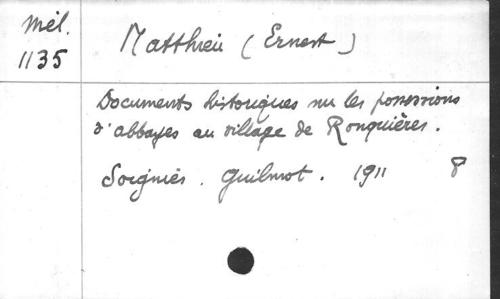 Mél.
1135
Matthieu (Ernest)
Documents historiques sur les possessions
d'abbayes au village de Ronquières.
Soignies. Guilmot. 1911 8